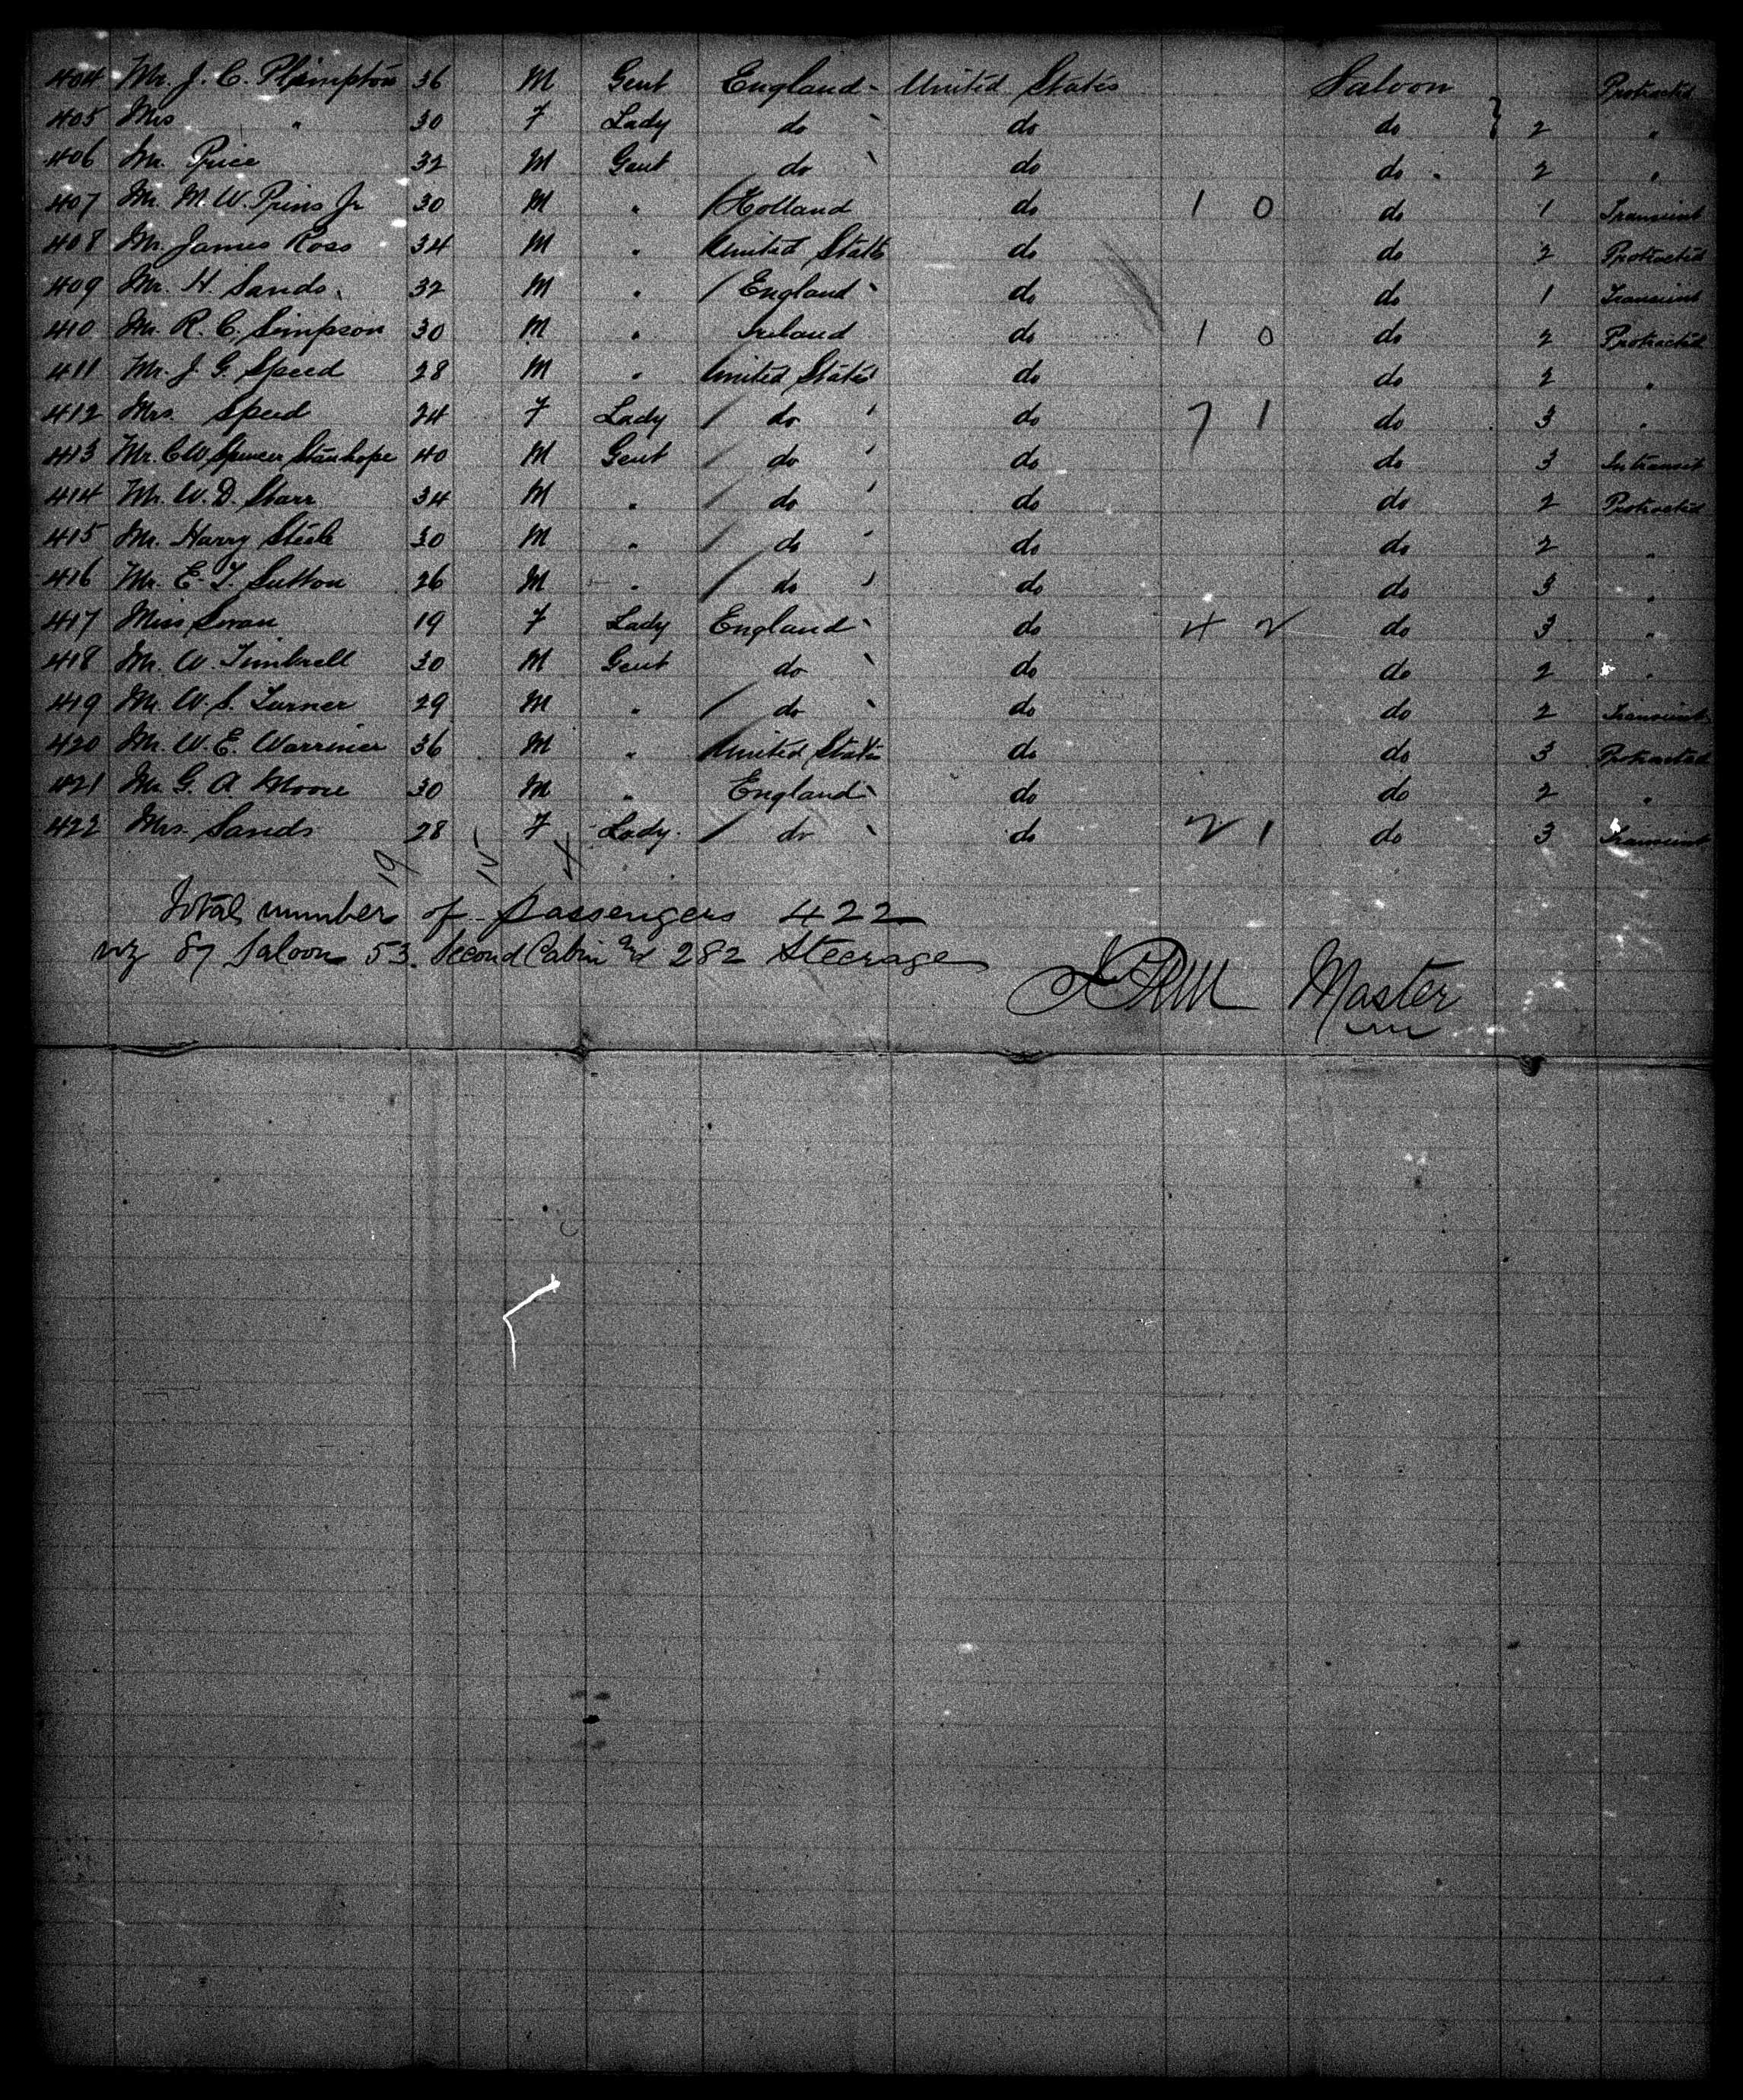 404 Mr. J. C. Plimpton 36 M Gent England United States Saloon Protracted
405 Mrs " 30 F Lady do do do } 2 "
406 Mr. Price 32 M Gent do do do 2 "
407 Mr. M. W. Prins Jr 30 M " Holland do 1 0 do 1 Transient
408 Mr. James Ross 34 M " United States do do 2 Protracted
409 Mr. H. Sands 32 M " England do do 1 Transient
410 Mr. R. C. Simpson 30 M " Ireland do 1 0 do 2 Protracted
411 Mr. J. G. Speed 28 M " United States do do 2 "
412 Mrs. Speed 24 F Lady do do 7 1 do 3 "
413 Mr. C W Spencer Stanhope 40 M Gent do do do 3 In transit
414 Mr. W. D. Starr 34 M " do do do 2 Protracted
415 Mr. Harry Steele 30 M " do do do 2 "
416 Mr. E. T. Sutton 26 M " do do do 3 "
417 Miss Swan 19 F Lady England do 4 2 do 3 "
418 Mr. W. Timbrell 30 M Gent do do do 2 "
419 Mr. W. S. Turner 29 M " do do do 2 Transient
420 Mr. W. E. Warriner 36 M " United States do do 3 Protracted
421 Mr. G. A. Moore 30 M " England do do 2 "
422 Mrs. Sands 28 F Lady do do 2 1 do 3 Transient
Total number of passengers 422
viz 87 Saloon 53 Second Cabin and 282 Steerage
Master